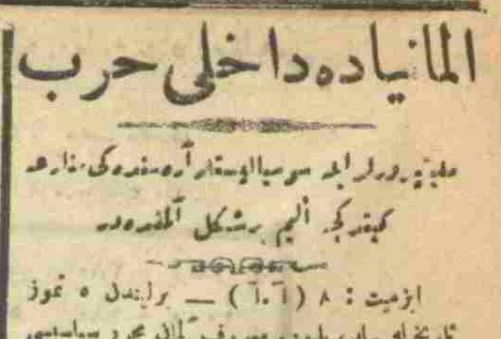 المانياده داخلی حرب
ملیتپرورلر ایله سوسیالیستلر آره‌سنده‌كی منازعه
كیتدكجه الیم برشكل آلمقده‌در
ازمیت : ٨ ( آ.آ ) — برلیندن ٥ تموز